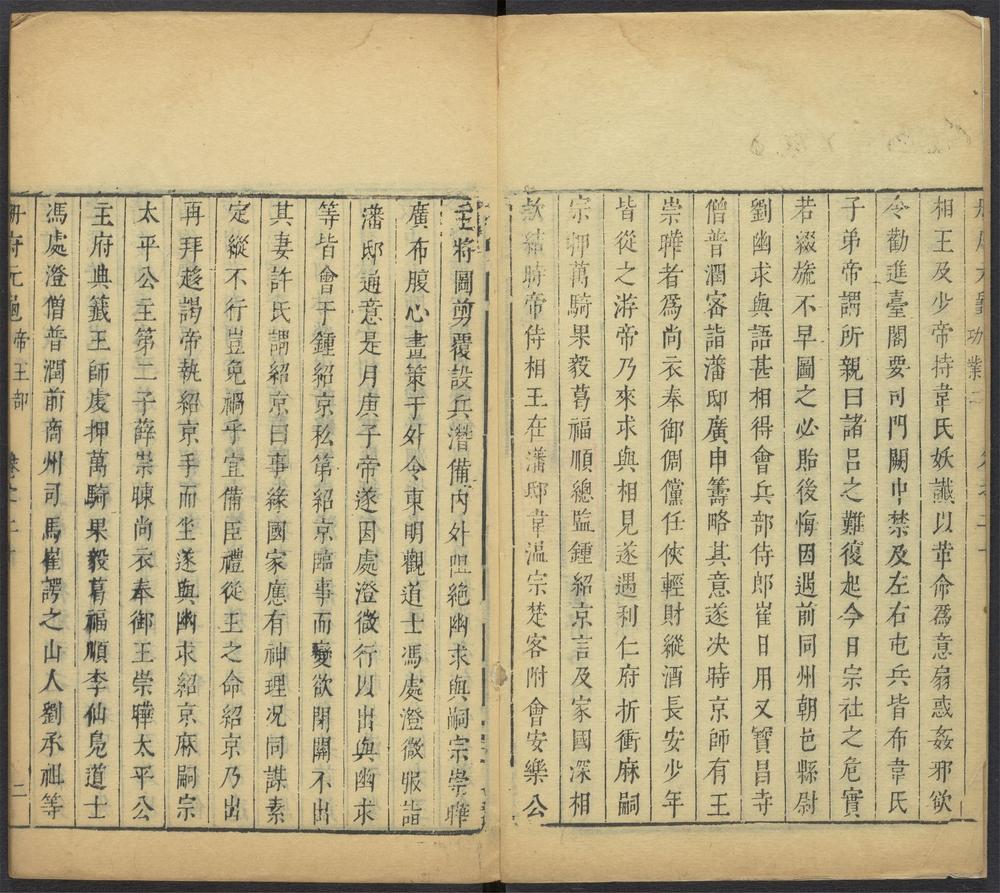 相王及少帝持韋氏妖讖以革命爲意扇惑姦邪欲
令勸進臺閣要司門闕中禁及左右屯兵皆布韋氏
子弟帝謂所親曰諸呂之難復起今日宗社之危實
若綴旒不早圖之必貽後悔因遇前同州朝邑縣尉
劉幽求與語甚相得會兵部侍郎崔日用又寶昌寺
僧普潤密詣藩邸廣申籌略其意遂决時京師有王
崇曄者爲尚衣奉御倜儻任俠輕財縱酒長安少年
皆從之游帝乃來求與相見遂遇利仁府折衝麻嗣
宗押萬騎果毅葛福順總監鍾紹京言及家國深相
欵結時帝侍相王在藩邸韋溫宗楚客附會安樂公
主將圖剪覆設兵潛備内外阻絶幽求與嗣宗崇曄
廣布腹心畫策于外令東明觀道士馮處澄微服詣
藩邸通意是月庚子帝遂因處澄微行以出與幽求
等皆會于鍾紹京私第紹京臨事而變欲閉關不出
其妻許氏謂紹京曰事緣國家應有神理况同謀素
定縱不行豈免禍乎宜備臣禮從王之命紹京乃出
再拜趍謁帝執紹京手而坐遂與幽求紹京麻嗣宗
太平公主第二子薛崇暕尚衣奉御王崇曄太平公
主府典籖王師虔押萬騎果毅葛福順李仙鳬道士
馮處澄僧普潤前商州司馬崔諤之山人劉承祖等
册府元龜 帝王部 卷之二十 二